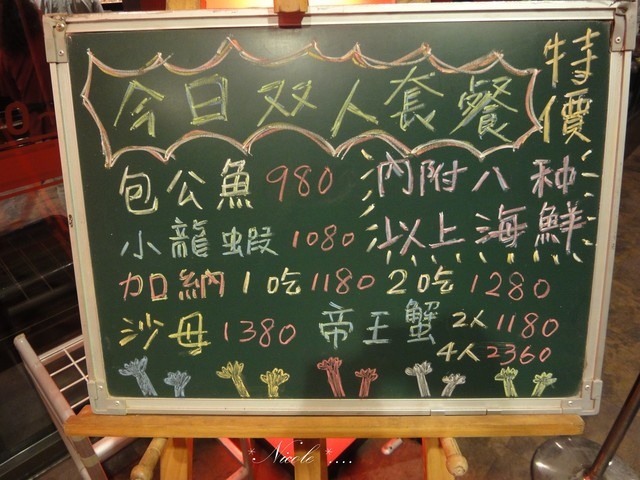 今日双人套餐
特價
包公魚 980
小龍蝦 1080
內附八種
以上海鮮
加納 1吃 1180 2吃 1280
沙母 1380
帝王蟹 2人 1180
4人 2360
*Nicole*....